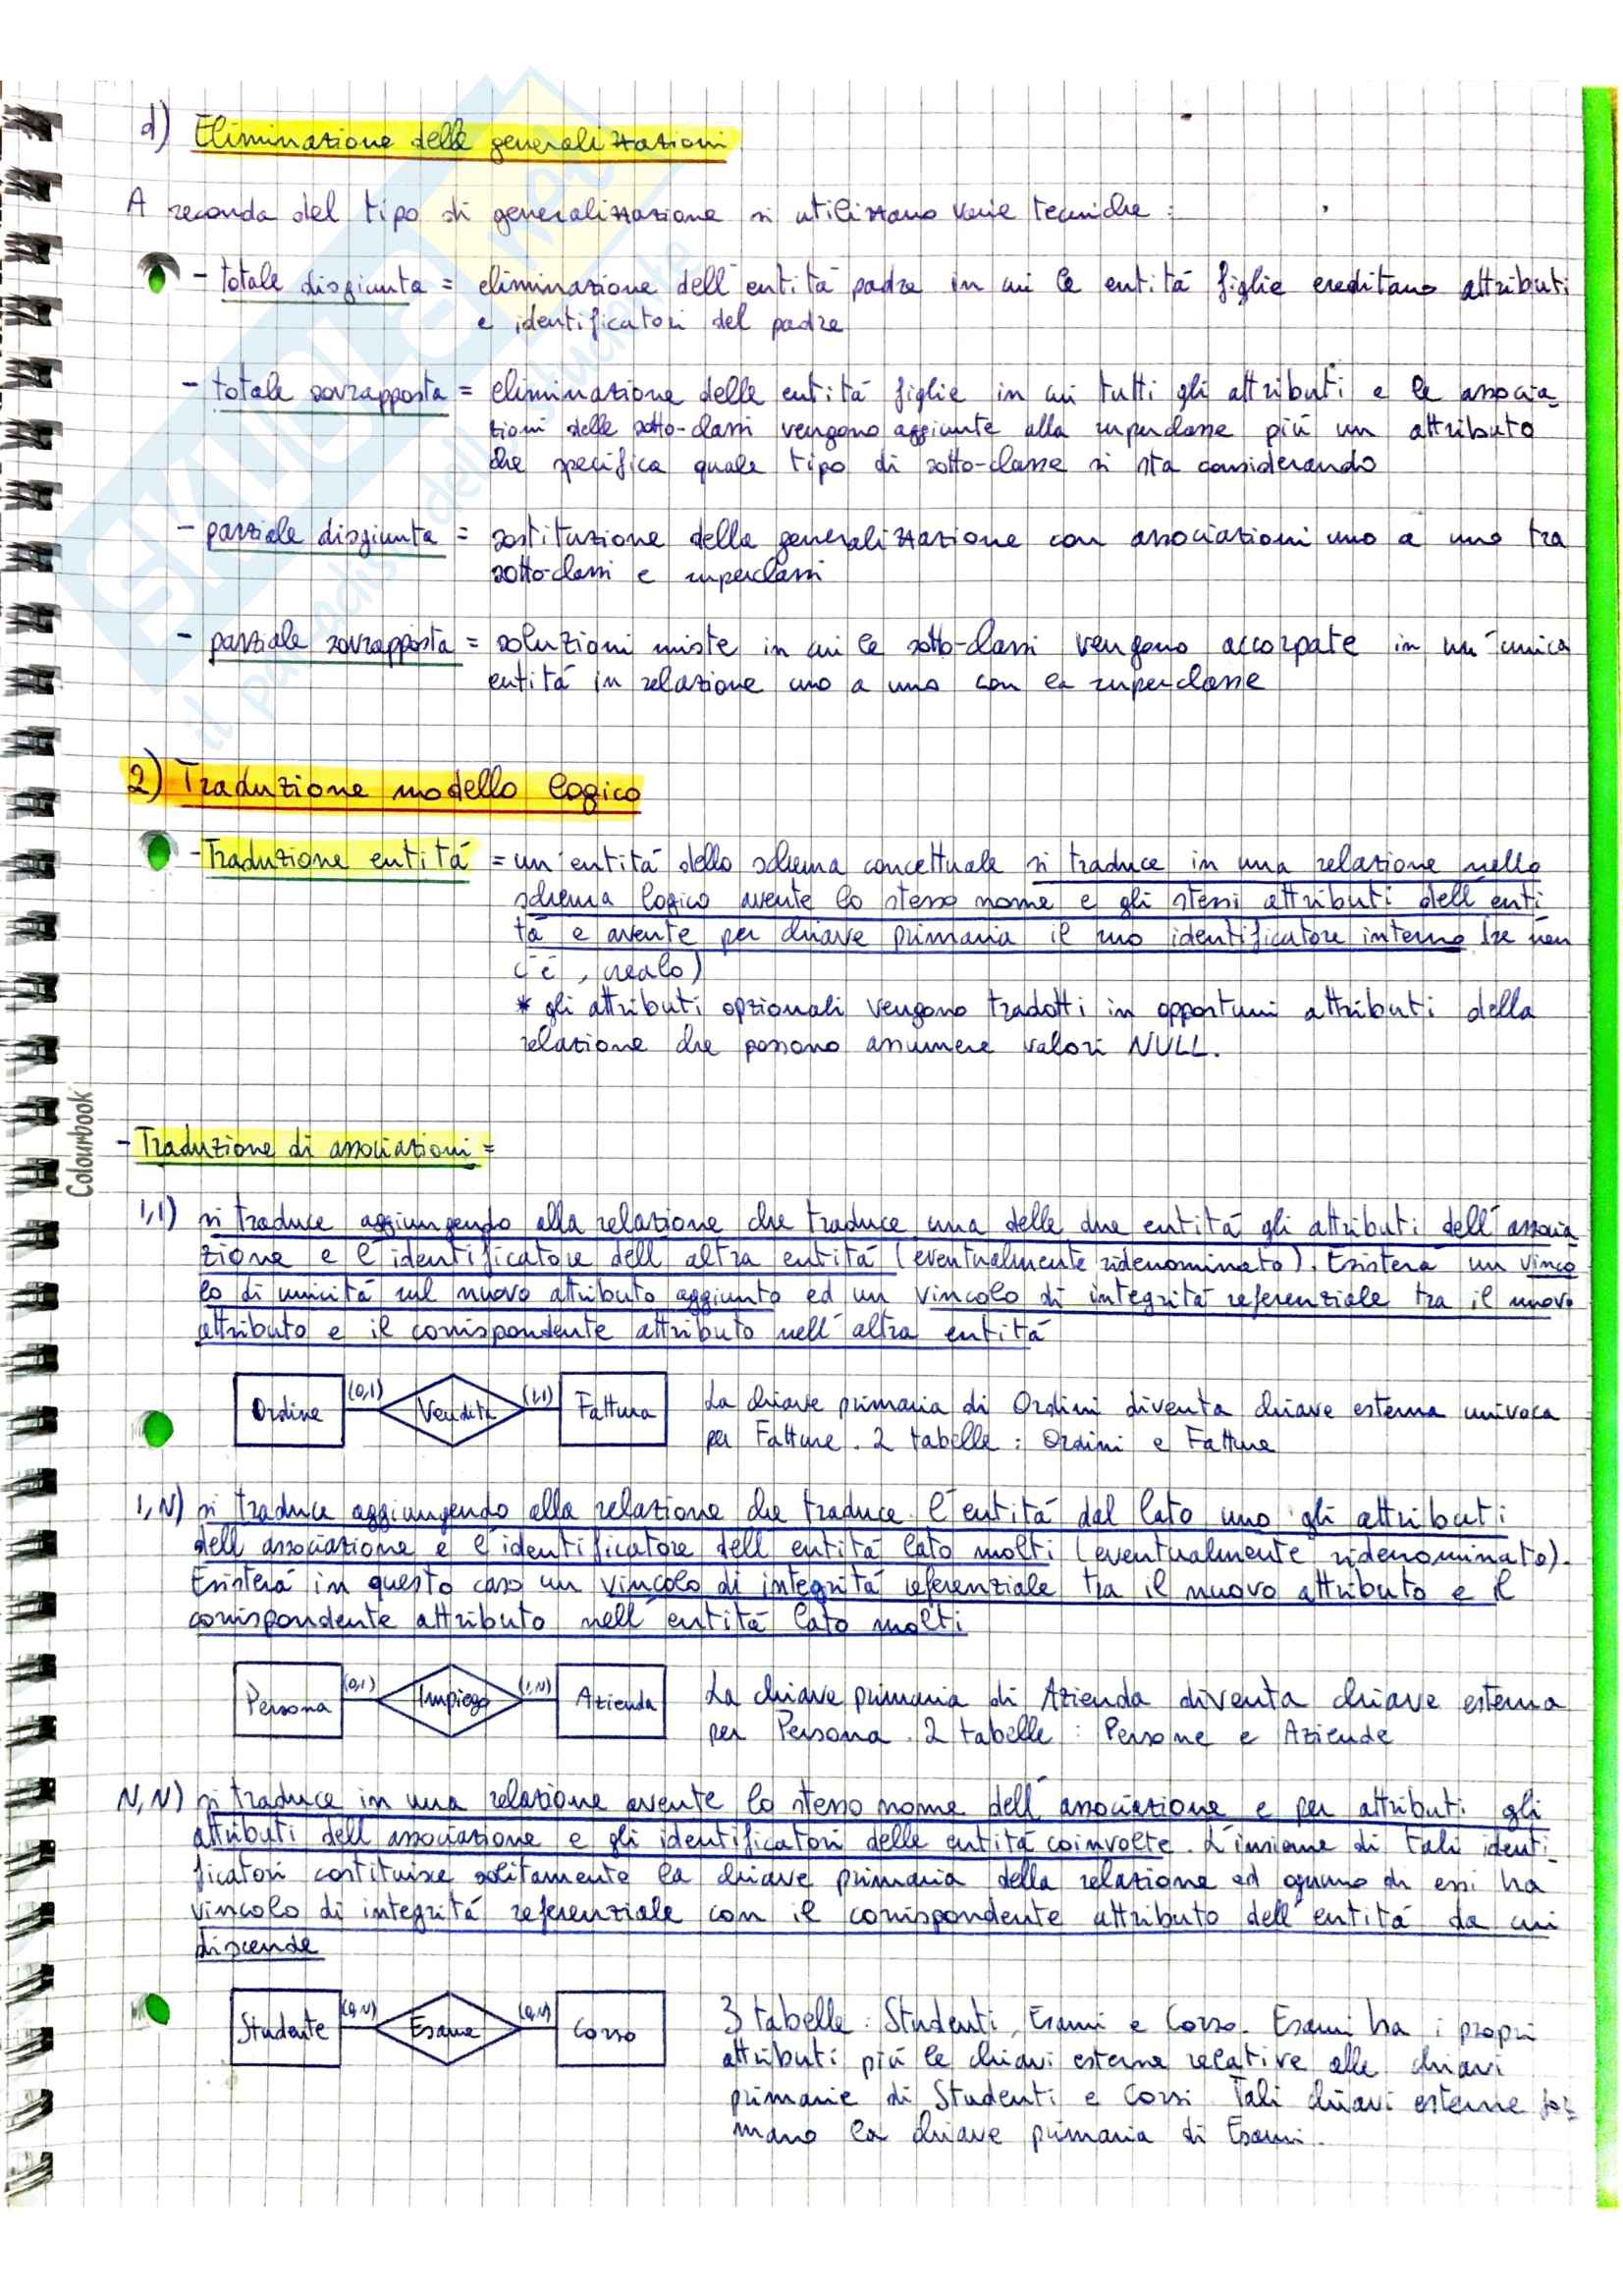 d) Eliminazione delle generalizzazioni
A seconda del tipo di generalizzazione si utilizzano varie tecniche :
- totale disgiunta = eliminazione dell'entità padre in cui le entità figlie ereditano attributi
e identificatori del padre
- totale sovrapposta = eliminazione delle entità figlie in cui tutti gli attributi e le associa-
zioni delle sotto-classi vengono aggiunte alla superclasse più un attributo
che specifica quale tipo di sotto-classe si sta considerando
- parziale disgiunta = sostituzione della generalizzazione con associazioni uno a uno tra
sotto-classi e superclassi
- parziale sovrapposta = soluzioni miste in cui le sotto-classi vengono accorpate in un'unica
entità in relazione uno a uno con la superclasse
2) Traduzione modello logico
- Traduzione entità = un'entità dello schema concettuale si traduce in una relazione nello
schema logico avente lo stesso nome e gli stessi attributi dell'enti
tà e avente per chiave primaria il suo identificatore interno (se non
c'è, crealo)
* gli attributi opzionali vengono tradotti in opportuni attributi della
relazione che possono assumere valori NULL.
Colourbook
- Traduzione di associazioni =
1,1) si traduce aggiungendo alla relazione che traduce una delle due entità gli attributi dell'associa
zione e l'identificatore dell'altra entità (eventualmente ridenominato). Esisterà un vinco
lo di unicità sul nuovo attributo aggiunto ed un vincolo di integrità referenziale tra il nuovo
attributo e il corrispondente attributo nell'altra entità
Ordine (0,1) Vendita (1,1) Fattura La chiave primaria di Ordini diventa chiave esterna univoca
per Fatture. 2 tabelle : Ordini e Fatture
1,N) si traduce aggiungendo alla relazione che traduce l'entità dal lato uno gli attributi
dell'associazione e l'identificatore dell'entità lato molti (eventualmente ridenominato).
Esisterà in questo caso un vincolo di integrità referenziale tra il nuovo attributo e il
corrispondente attributo nell'entità lato molti
Persona (0,1) Impiego (1,N) Azienda La chiave primaria di Azienda diventa chiave esterna
per Persona. 2 tabelle : Persone e Aziende
N,N) si traduce in una relazione avente lo stesso nome dell'associazione e per attributi gli
attributi dell'associazione e gli identificatori delle entità coinvolte. L'insieme di tali identi-
ficatori costituisce solitamente la chiave primaria della relazione ed ognuno di essi ha
vincolo di integrità referenziale con il corrispondente attributo dell'entità da cui
discende
Studente (0,N) Esame (0,N) Corso 3 tabelle : Studenti, Esami e Corso. Esami ha i propri
attributi più le chiavi esterne relative alle chiavi
primarie di Studenti e Corsi. Tali chiavi esterne for-
mano la chiave primaria di Esami.